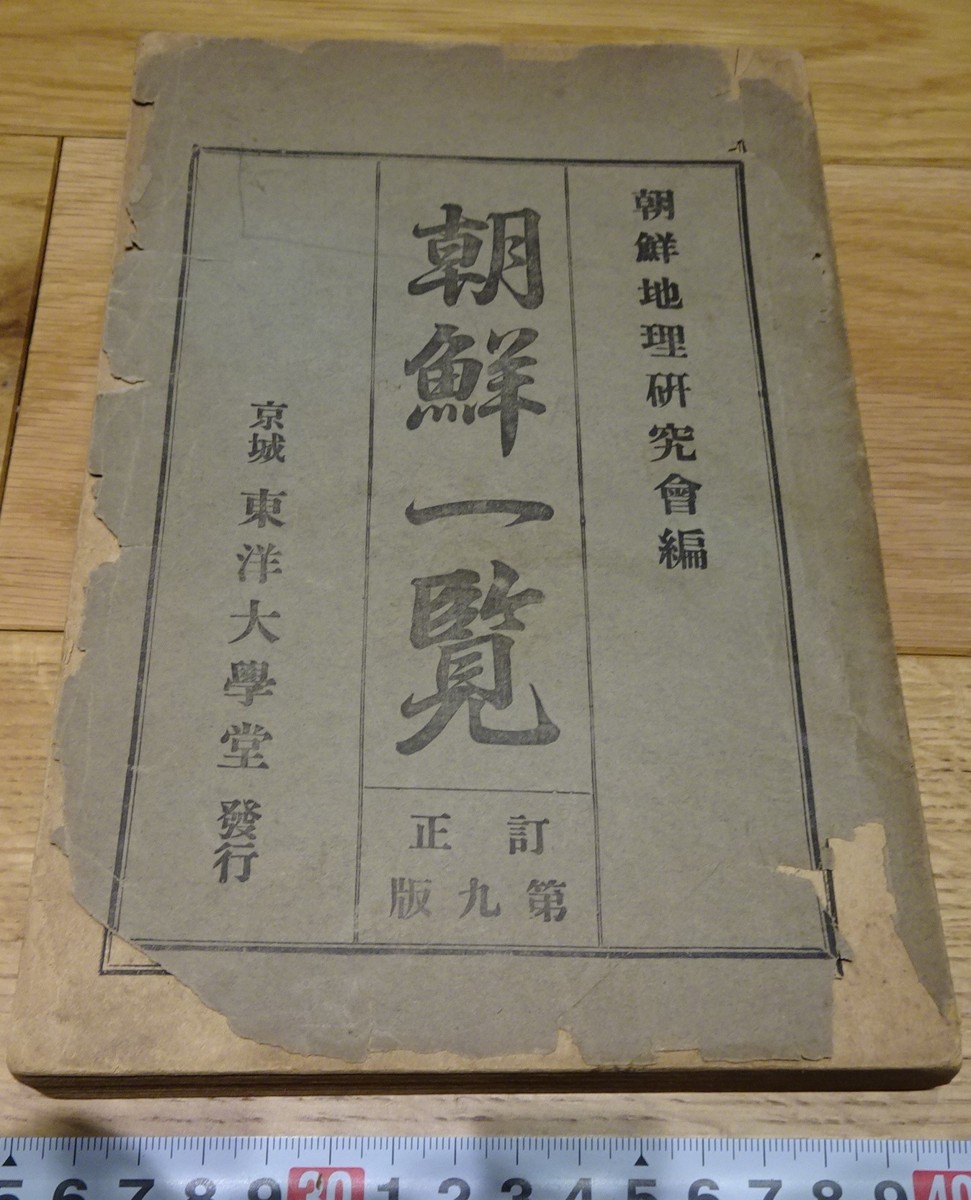 朝鮮地理研究會編
朝鮮一覽
訂正
第九版
京城 東洋大學堂 發行
5 6 7 8 9 30 1 2 3 4 5 6 7 8 9 40